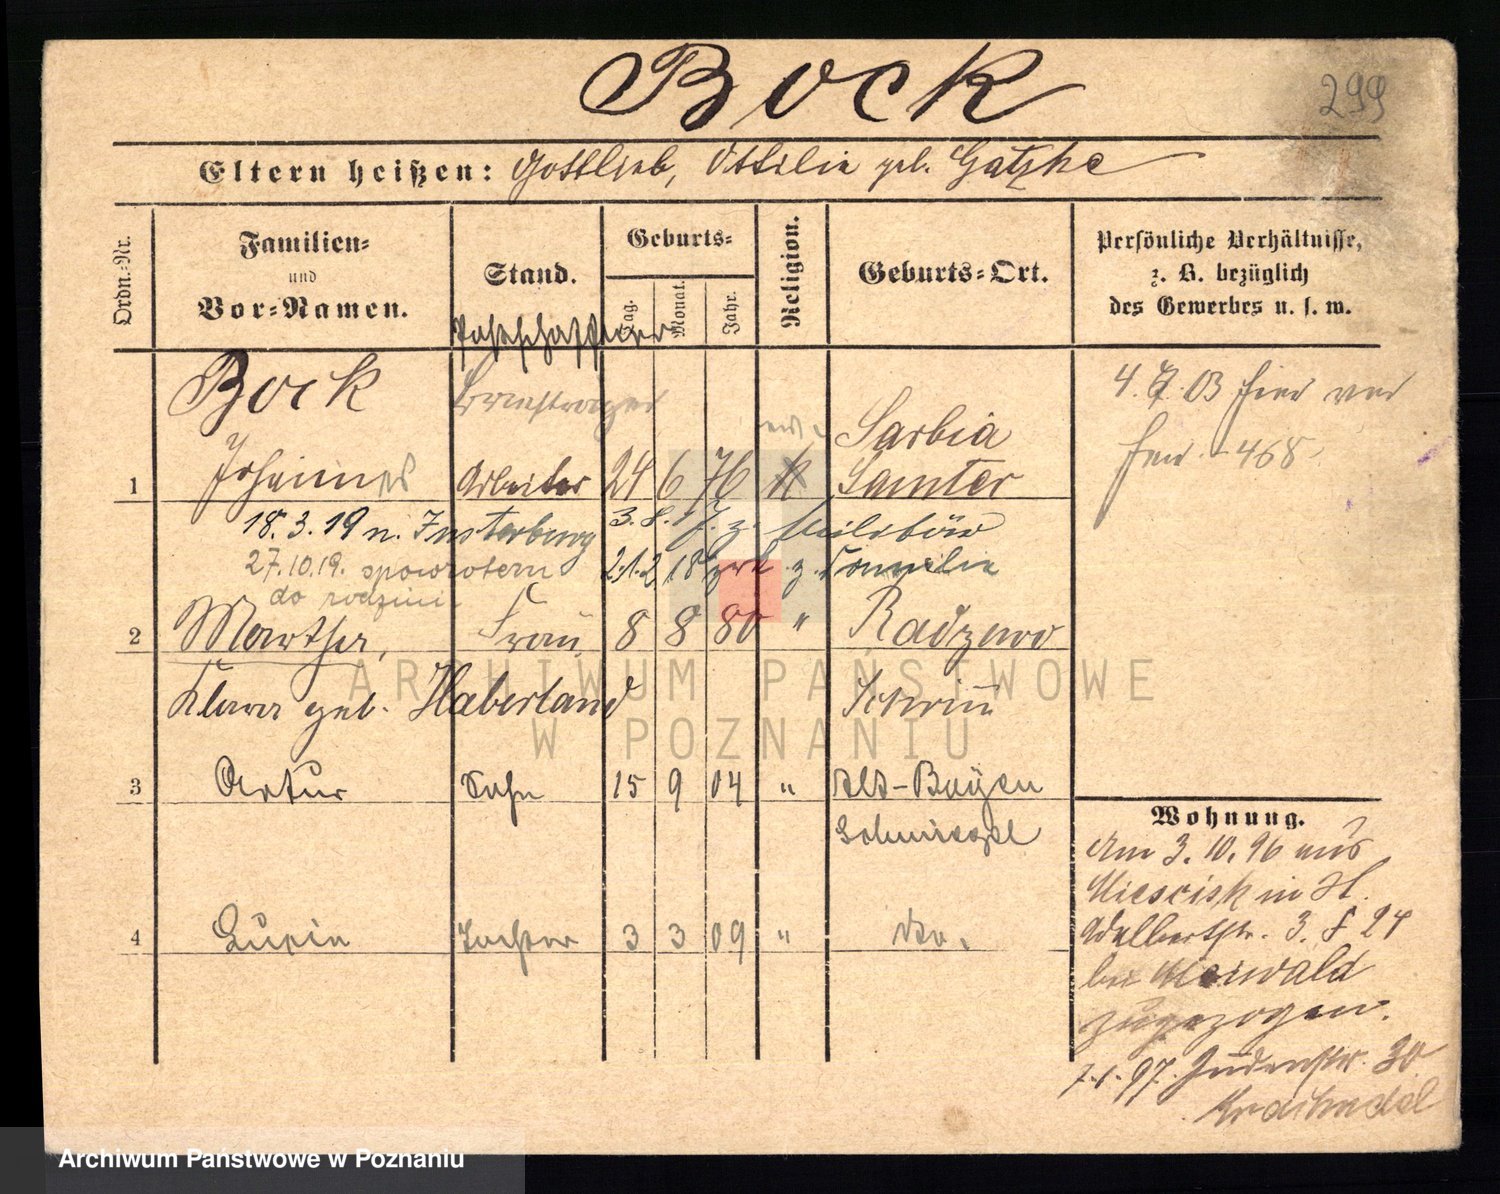 Bock
299
Eltern heißen: Gottlieb, Ottilie geb. Gatzke
Ordn.-Nr.
Familien-
und
Vor-Namen.
Stand.
Geburts-
Tag.
Monat.
Jahr.
Religion.
Geburts-Ort.
Persönliche Verhältnisse,
z. B. bezüglich
des Gewerbes u. s. w.
Postschaffner
Bock
Sarbia
1 Johannes Arbeiter 24 6 76 K Samter
ev.
4. 7. 03
468
18. 3. 19 n. Insterburg
3. 8. 17. z. Militär
27.10.19. spowrotem
do rodzini
21. 2. 18 zrk z. Familie
2 Martha, Frau 8 8 80 " Radzewo
Klara geb. Haberland Schrim
3 Artur Sohn 15 9 04 " Alt-Boyen
Schmiegel
4 Luzie Tochter 3 3 09 " do.
Wohnung.
Am 3. 10. 96 aus
Miescisk in H.
Adalbertstr. 3. § 24
bei Meiwald
zugezogen.
7.1.97. Judenstr. 30
ARCHIWUM PAŃSTWOWE
W POZNANIU
Archiwum Państwowe w Poznaniu